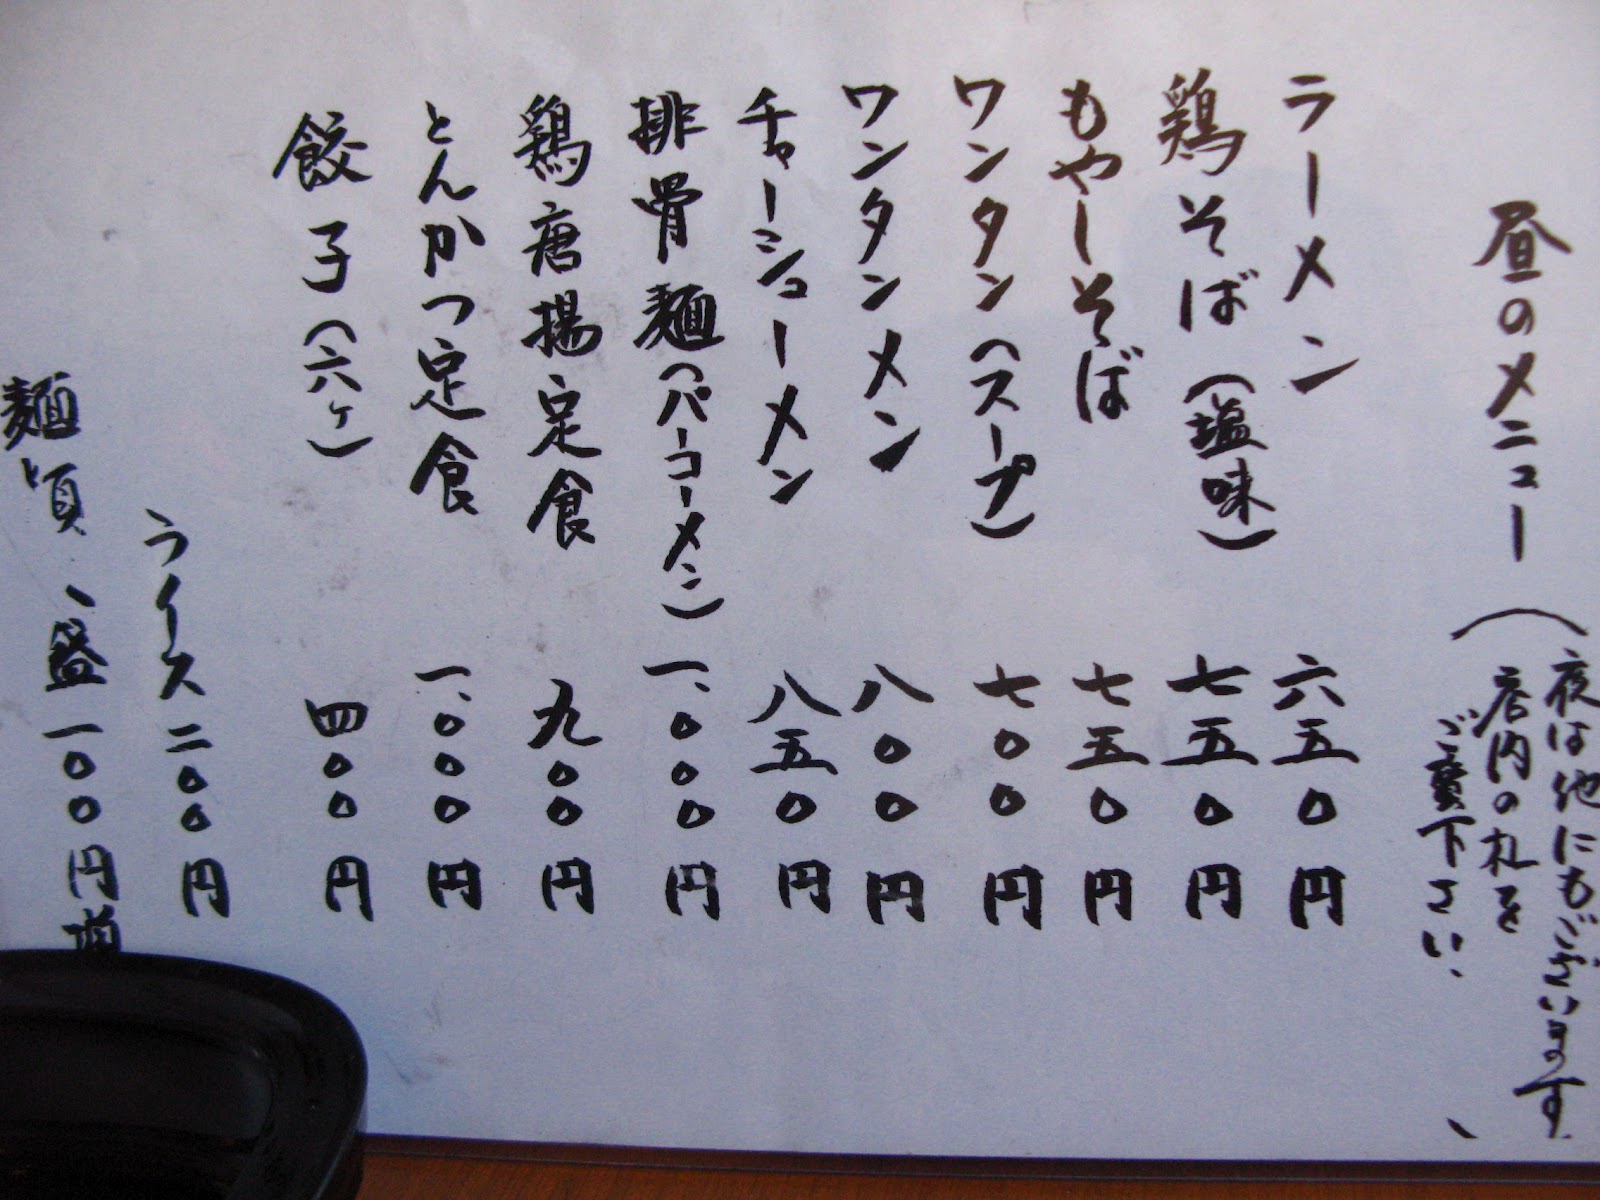 昼のメニュー
(夜は他にもございます
店内の札を
ご覧下さい、)
ラーメン 六五〇円
鶏そば(塩味) 七五〇円
もやしそば 七五〇円
ワンタン(スープ) 七〇〇円
ワンタンメン 八〇〇円
チャーシューメン 八五〇円
排骨麺(パーコーメン) 一、〇〇〇円
鶏唐揚定食 九〇〇円
とんかつ定食 一、〇〇〇円
餃子(六ヶ) 四〇〇円
ライス 二〇〇円
麺 盛 一〇〇円増